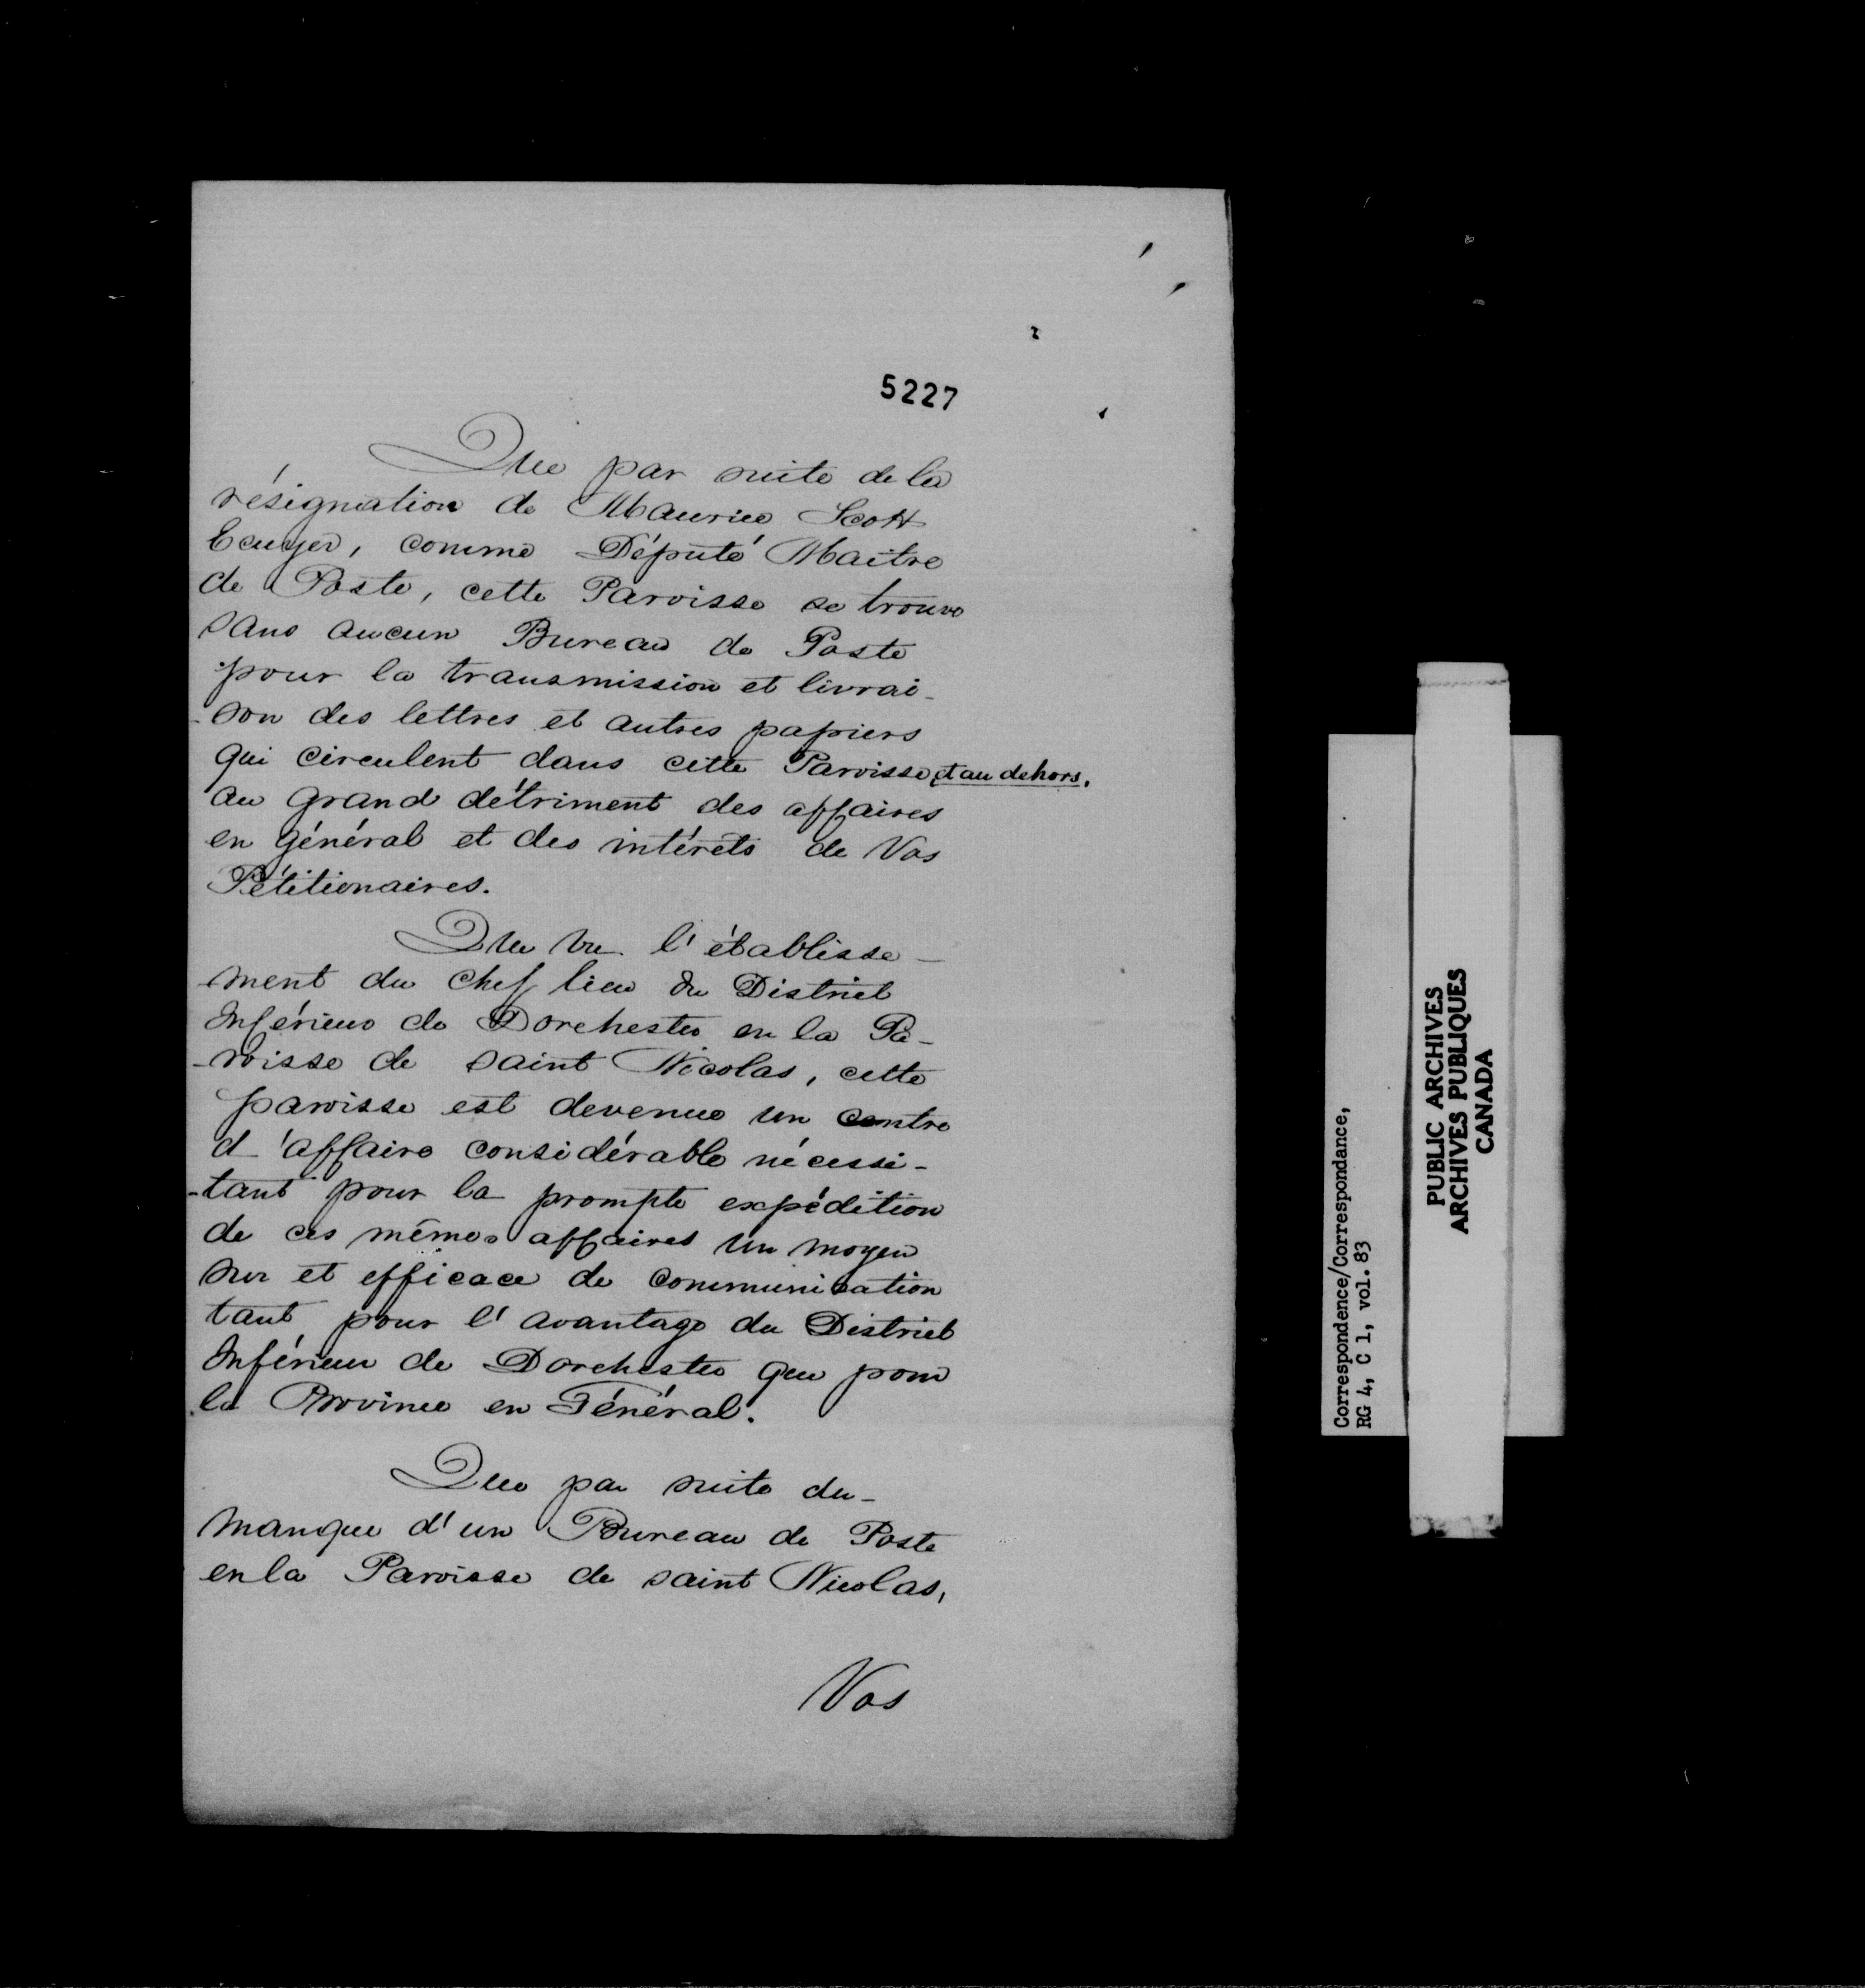 5227
Que par suite de la
résignation de Maurice Scott
Ecuyer, comme Député Maitre
de Poste, cette Paroisse se trouve
sans aucun Bureau de Poste
pour la transmission et livrai-
-son des lettres et autres papiers
qui circulent dans cette Paroisse et au dehors.
au grand détriment des affaires
en général et des intérêts de Vos
Pétitionaires.
Que vu l'établisse-
-ment du Chef lieu du District
Inférieur de Dorchester en la Pa-
-roisse de saint Nicolas, cette
paroisse est devenue un centre
d'affaire considérable nécessi-
-tant pour la prompte expédition
de ces mêmes affaires un moyen
sur et efficace de communication
tant pour l'avantage du District
Inférieur de Dorchester que pour
la Province en Général.
Que par suite du-
manque d'un Bureau de Poste
en la Paroisse de saint Nicolas,
Vos
Correspondence/Correspondance,
RG 4, C 1, vol. 83
PUBLIC ARCHIVES
ARCHIVES PUBLIQUES
CANADA